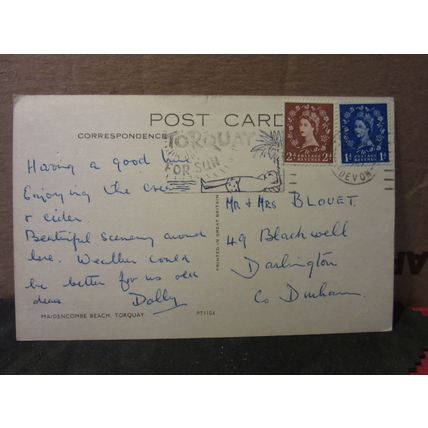 POST CARD
CORRESPONDENCE
TORQUAY
FOR SUN
2D POSTAGE REVENUE 2D
1D POSTAGE REVENUE 1D
DEVON
Having a good time
Enjoying the
& cider
Beautiful scenery around
here. Weather could
be better for us old
dears Dolly
PRINTED IN GREAT BRITAIN
Mr & Mrs BLOUET
49 Blackwell
Darlington
Co Durham.
MAIDENCOMBE BEACH, TORQUAY PT1104